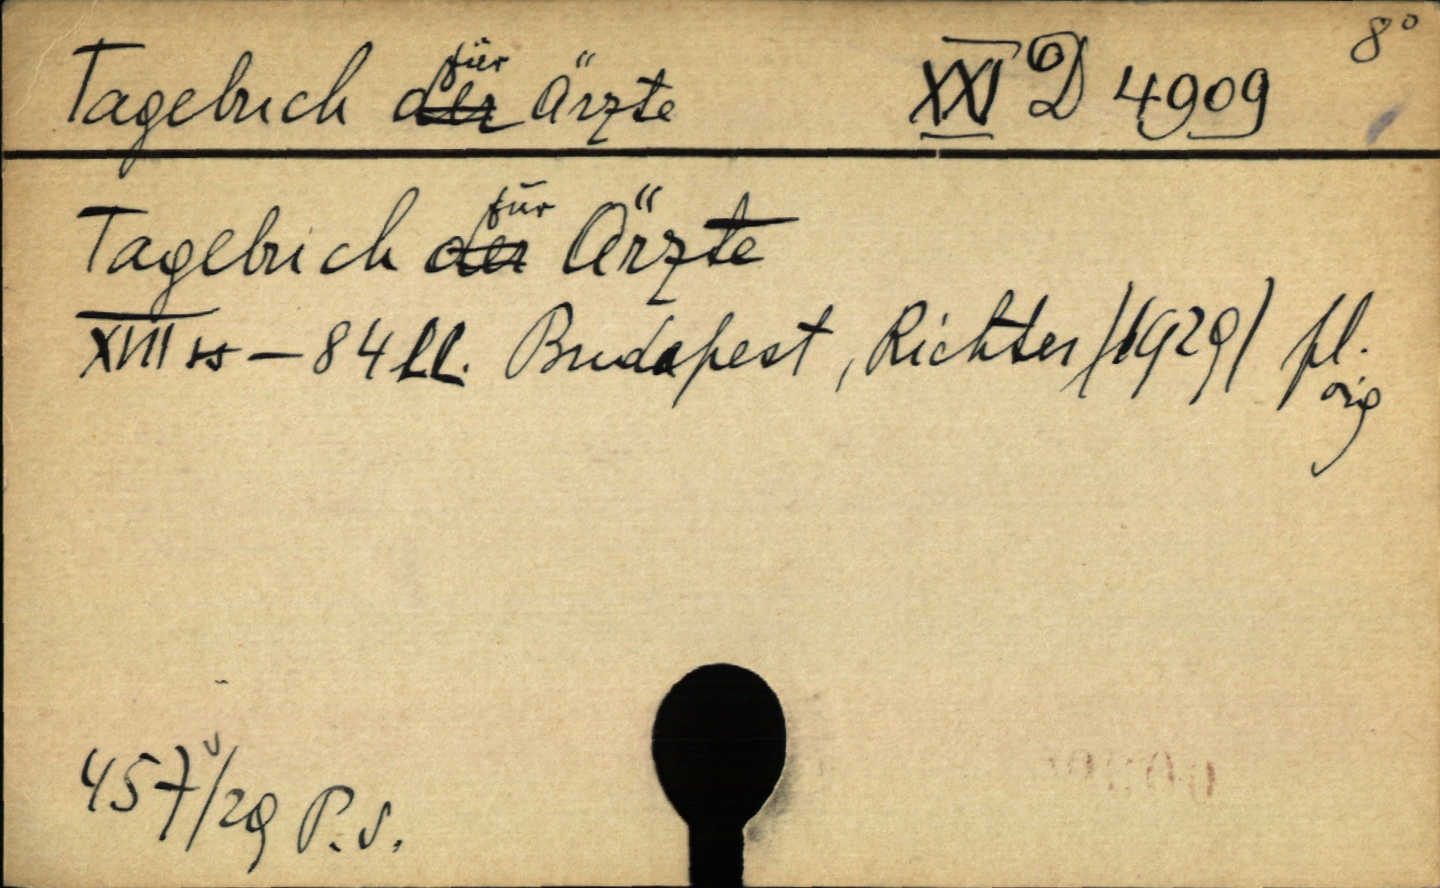 Tagebuch für Ärzte XXI D 4909 8°
Tagebuch für Ärzte
XVIII ss — 84 ll. Budapest, Richter (1929) pl.
orig
457/29 P. S.